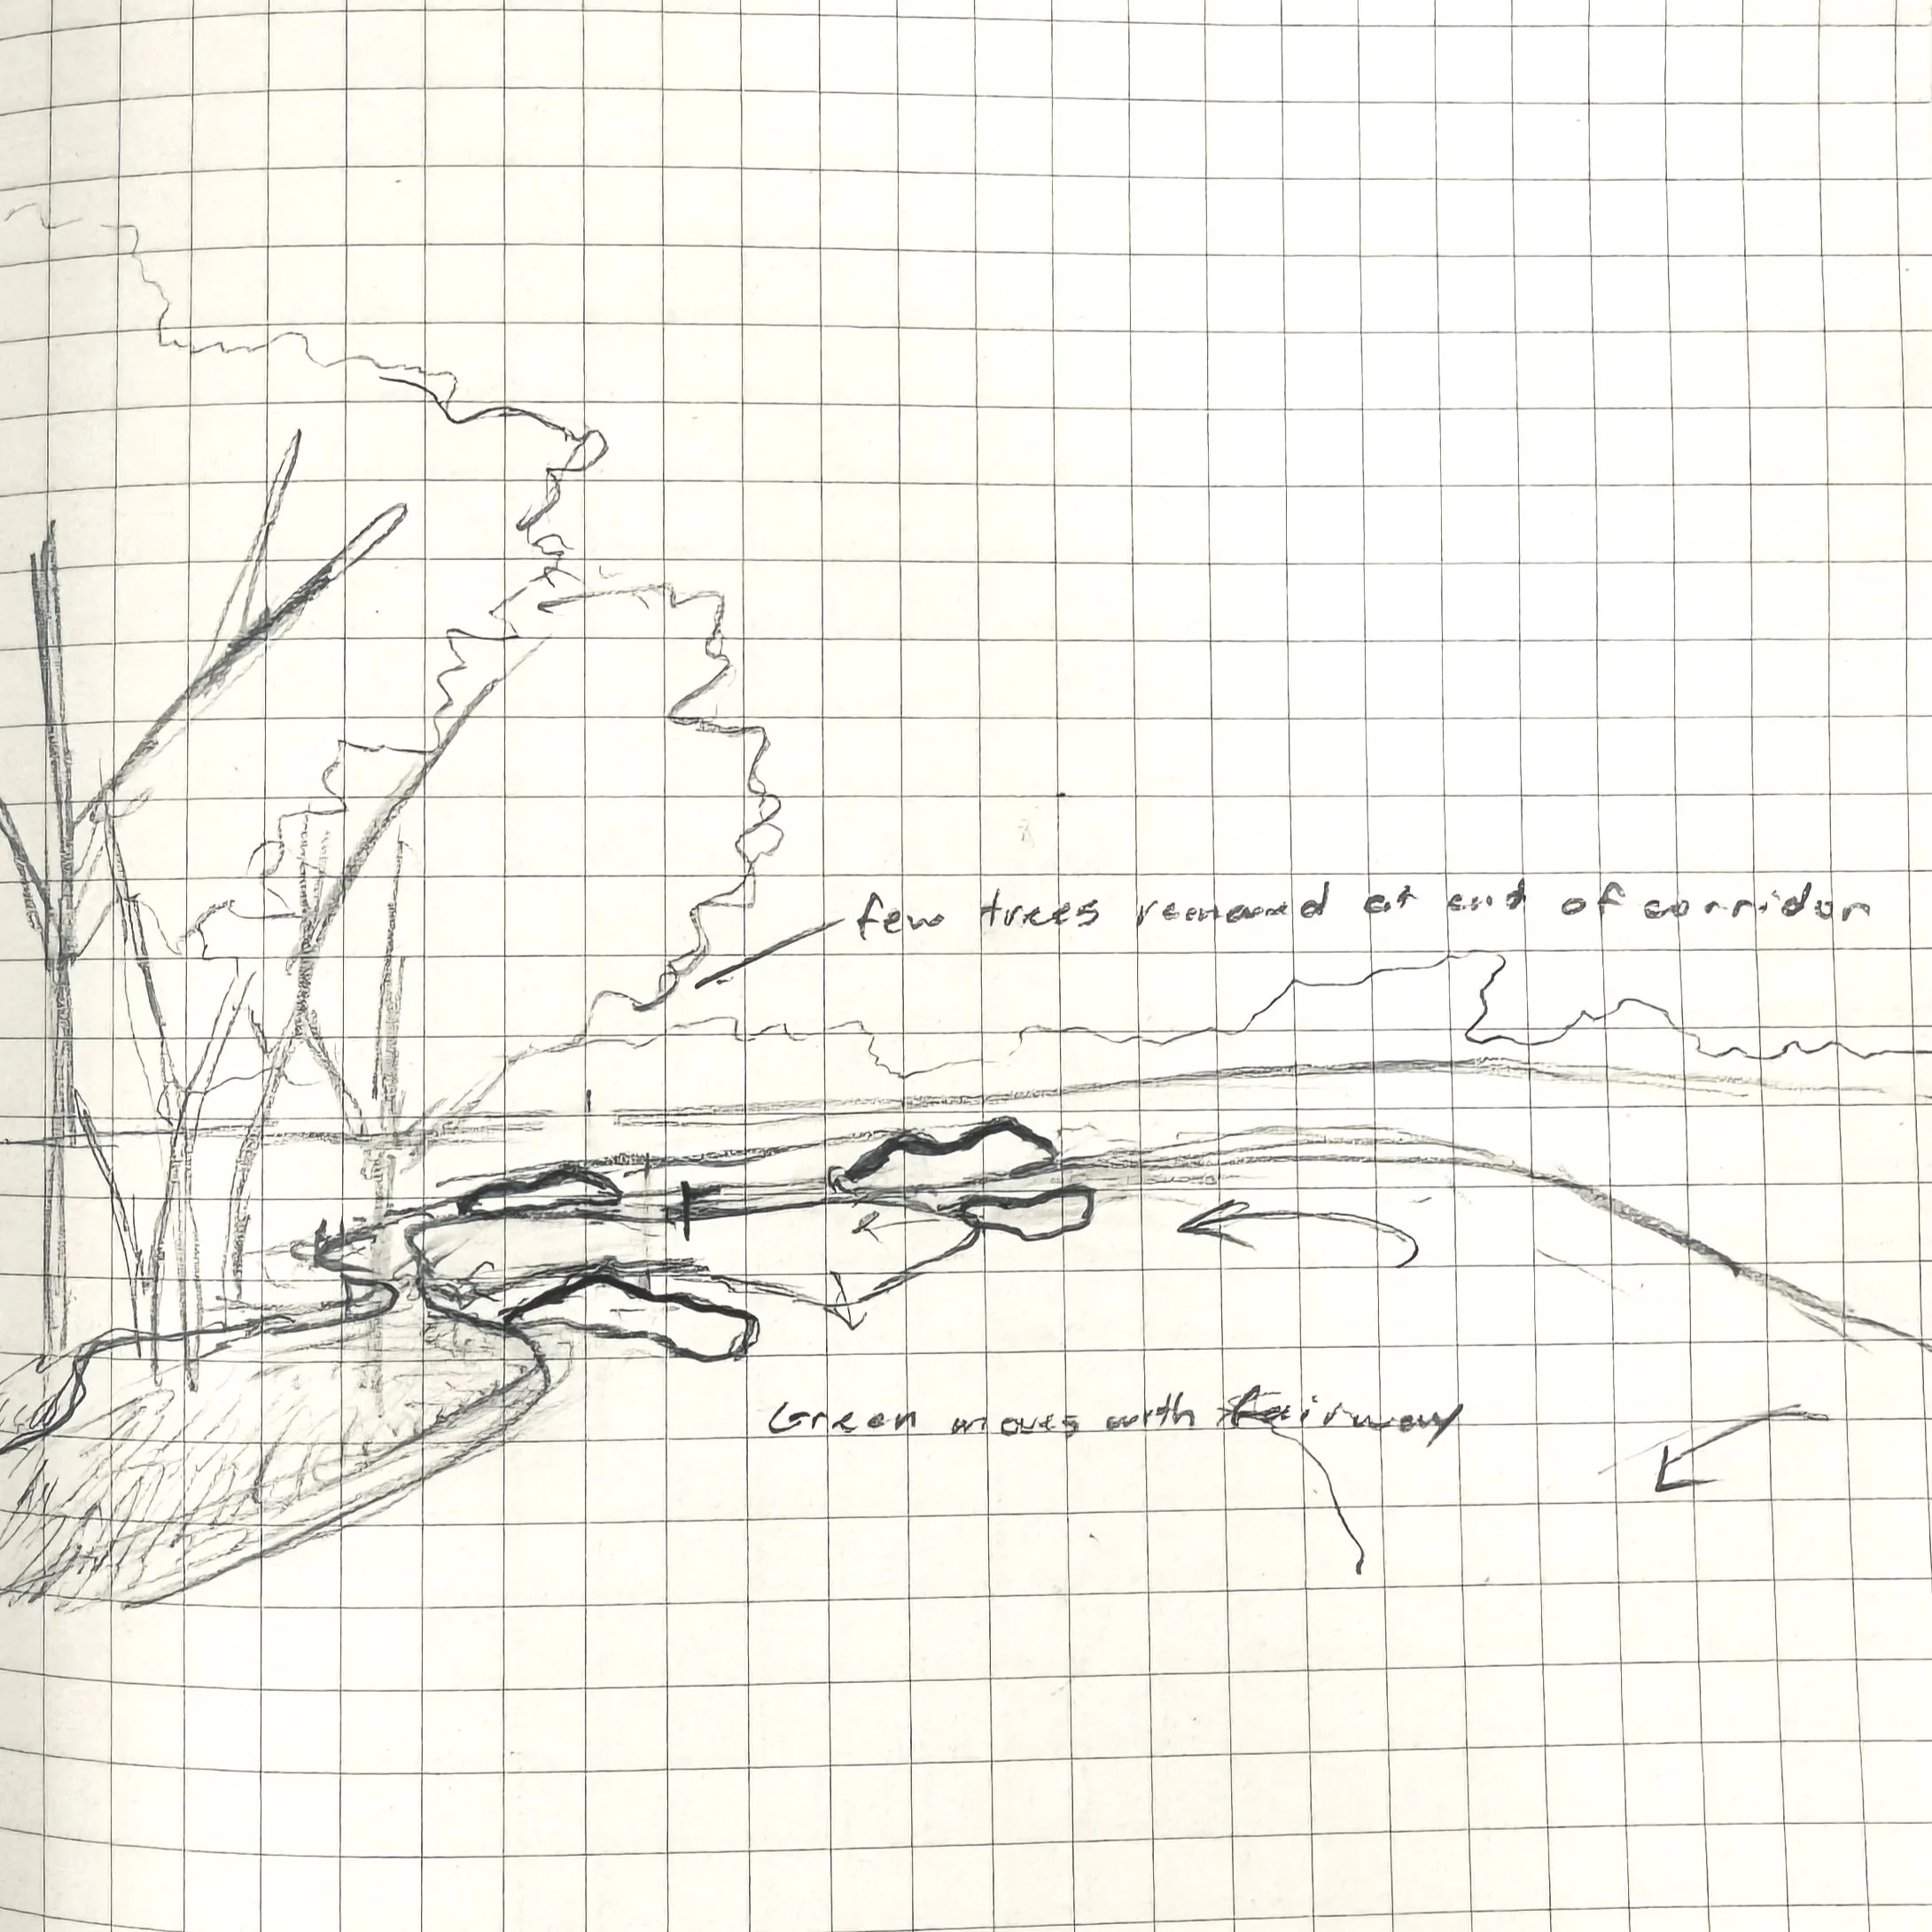 few trees removed at end of corridor
Green moves with fairway